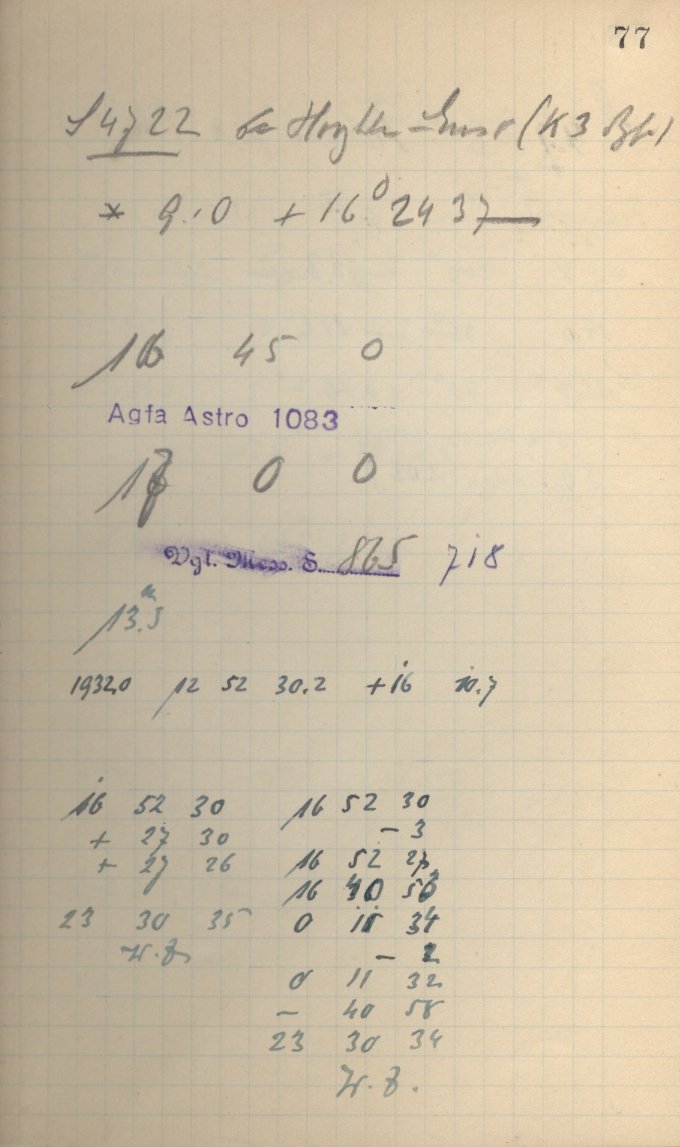 77
S 4722 (K3
* 9.0 + 16° 24 37
16 45 0
Agfa Astro 1083
17 0 0
Vgl. Mess. S. 865 718
13.3m
1932.0 12 52 30.2 + 16 10.7
16 52 30
+ 27 30
+ 27 26
23 30 35
16 52 30
- 3
16 52 27
16 40 53
0 11 34
- 2
0 11 32
- 40 58
23 30 34